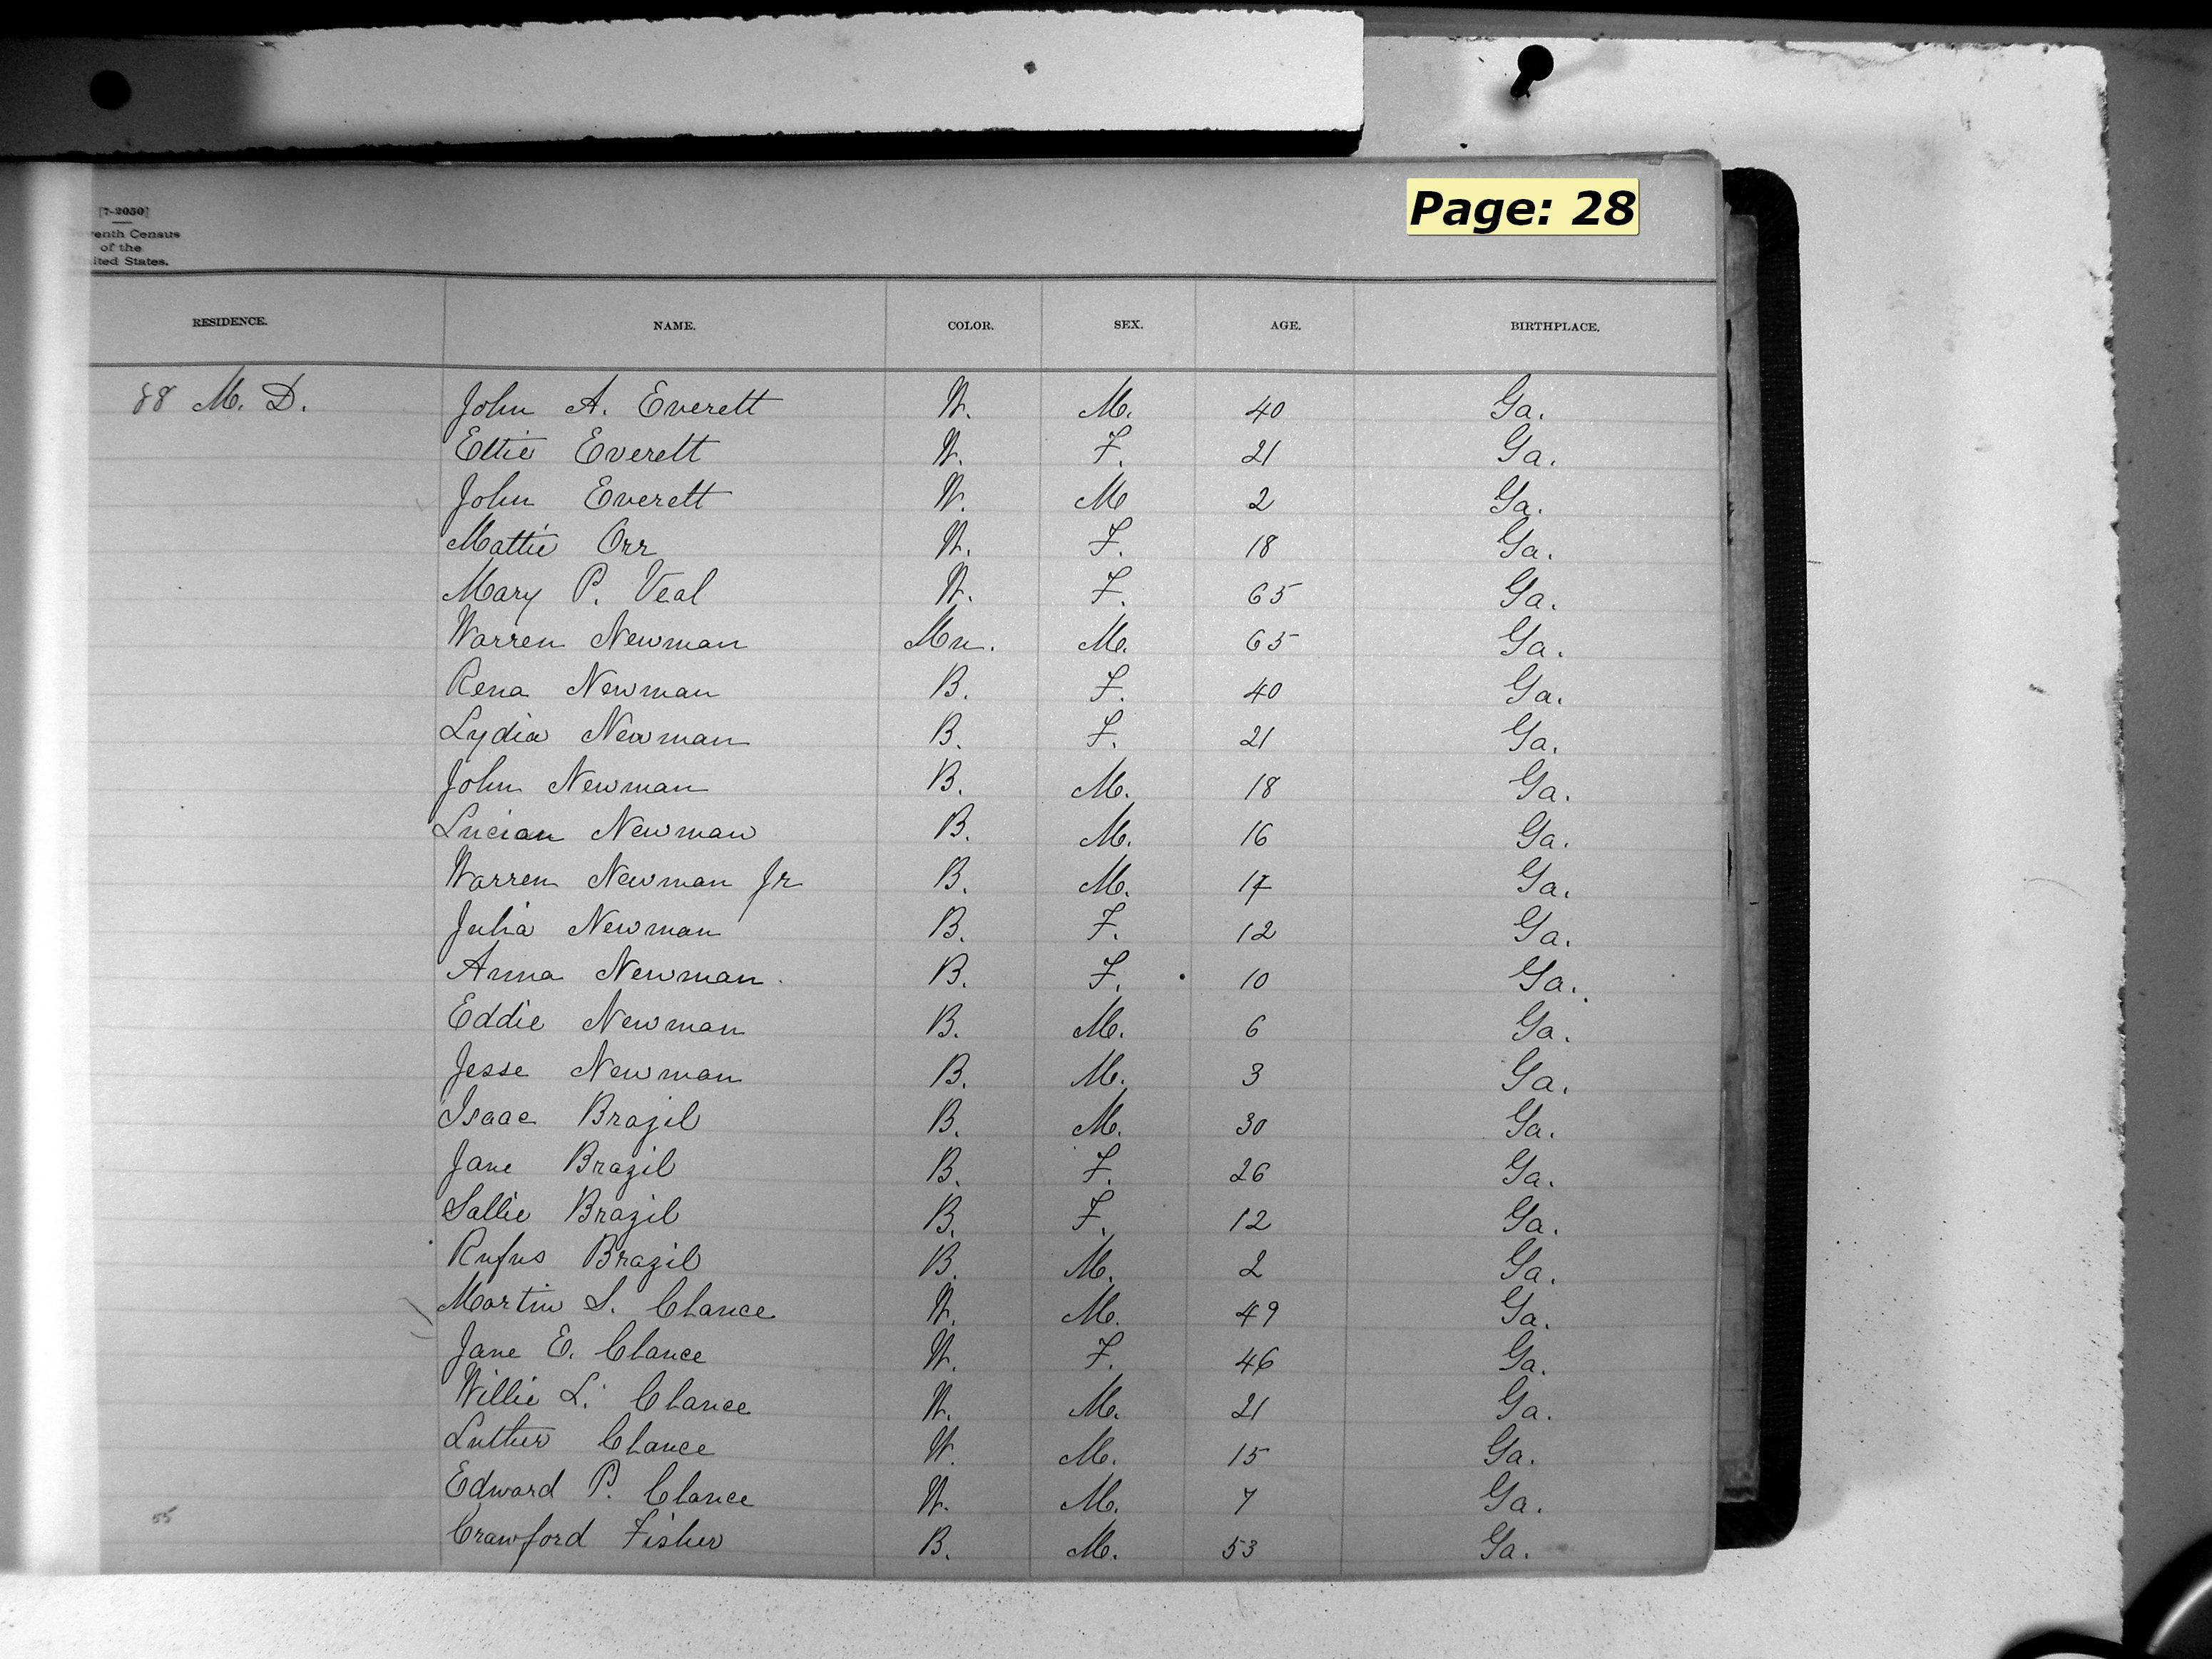 Page: 28
[7-2050]
enth Census
of the
ited States.
RESIDENCE. NAME. COLOR. SEX. AGE. BIRTHPLACE.
88 M. D. John A. Everett W. M. 40 Ga.
Ettie Everett W. F. 21 Ga.
John Everett W. M 2 Ga.
Mattie Orr W. F. 18 Ga.
Mary P. Veal W. F. 65 Ga.
Warren Newman Mu. M. 65 Ga.
Rena Newman B. F. 40 Ga.
Lydia Newman B. F. 21 Ga.
John Newman B. M. 18 Ga.
Lucian Newman B. M. 16 Ga.
Warren Newman Jr B. M. 17 Ga.
Julia Newman B. F. 12 Ga.
Anna Newman B. F. 10 Ga.
Eddie Newman B. M. 6 Ga.
Jesse Newman B. M. 3 Ga.
Isaac Brazil B. M. 30 Ga.
Jane Brazil B. F. 26 Ga.
Sallie Brazil B. F. 12 Ga.
Rufus Brazil B. M. 2 Ga.
Martin S. Chance W. M. 49 Ga.
Jane E. Chance W. F. 46 Ga.
Willie L. Chance W. M. 21 Ga.
Luther Chance W. M. 15 Ga.
Edward P. Chance W. M. 7 Ga.
55 Crawford Fisher B. M. 53 Ga.